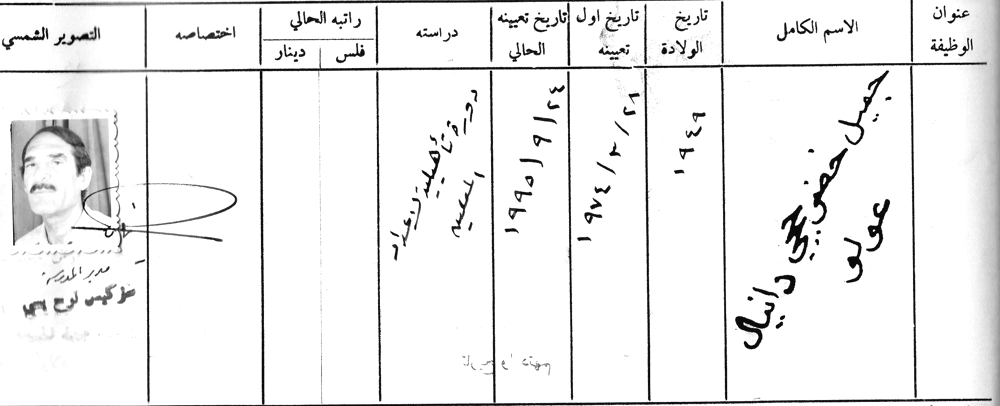 عنوان الوظيفة
الاسم الكامل
تاريخ الولادة
تاريخ اول تعيينه
تاريخ تعيينه الحالي
دراسته
راتبه الحالي
فلس
دينار
اختصاصه
التصوير الشمسي
جميل خضر ججي دانيال
عولو
١٩٤٩
١٩٧٤/٣/٢١
١٩٩٥/٩/٢٤
دورة تأهيلية لاعداد
مدير المدرسة